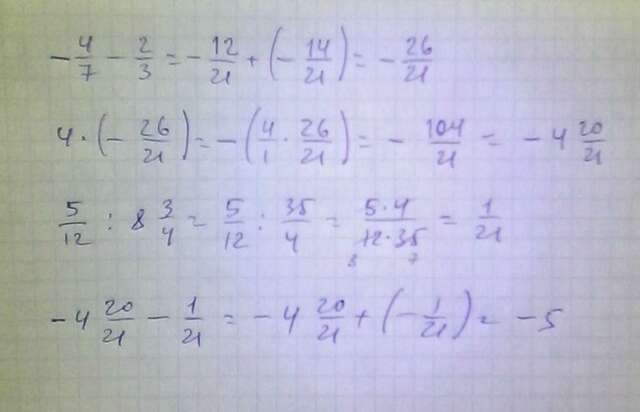 -4/7 - 2/3 = -12/21 + (-14/21) = -26/21
4 · (-26/21) = -(4/1 · 26/21) = -104/21 = -4 20/21
5/12 : 8 3/4 = 5/12 : 35/4 = 5·4/12·35 = 1/21
-4 20/21 - 1/21 = -4 20/21 + (-1/21) = -5